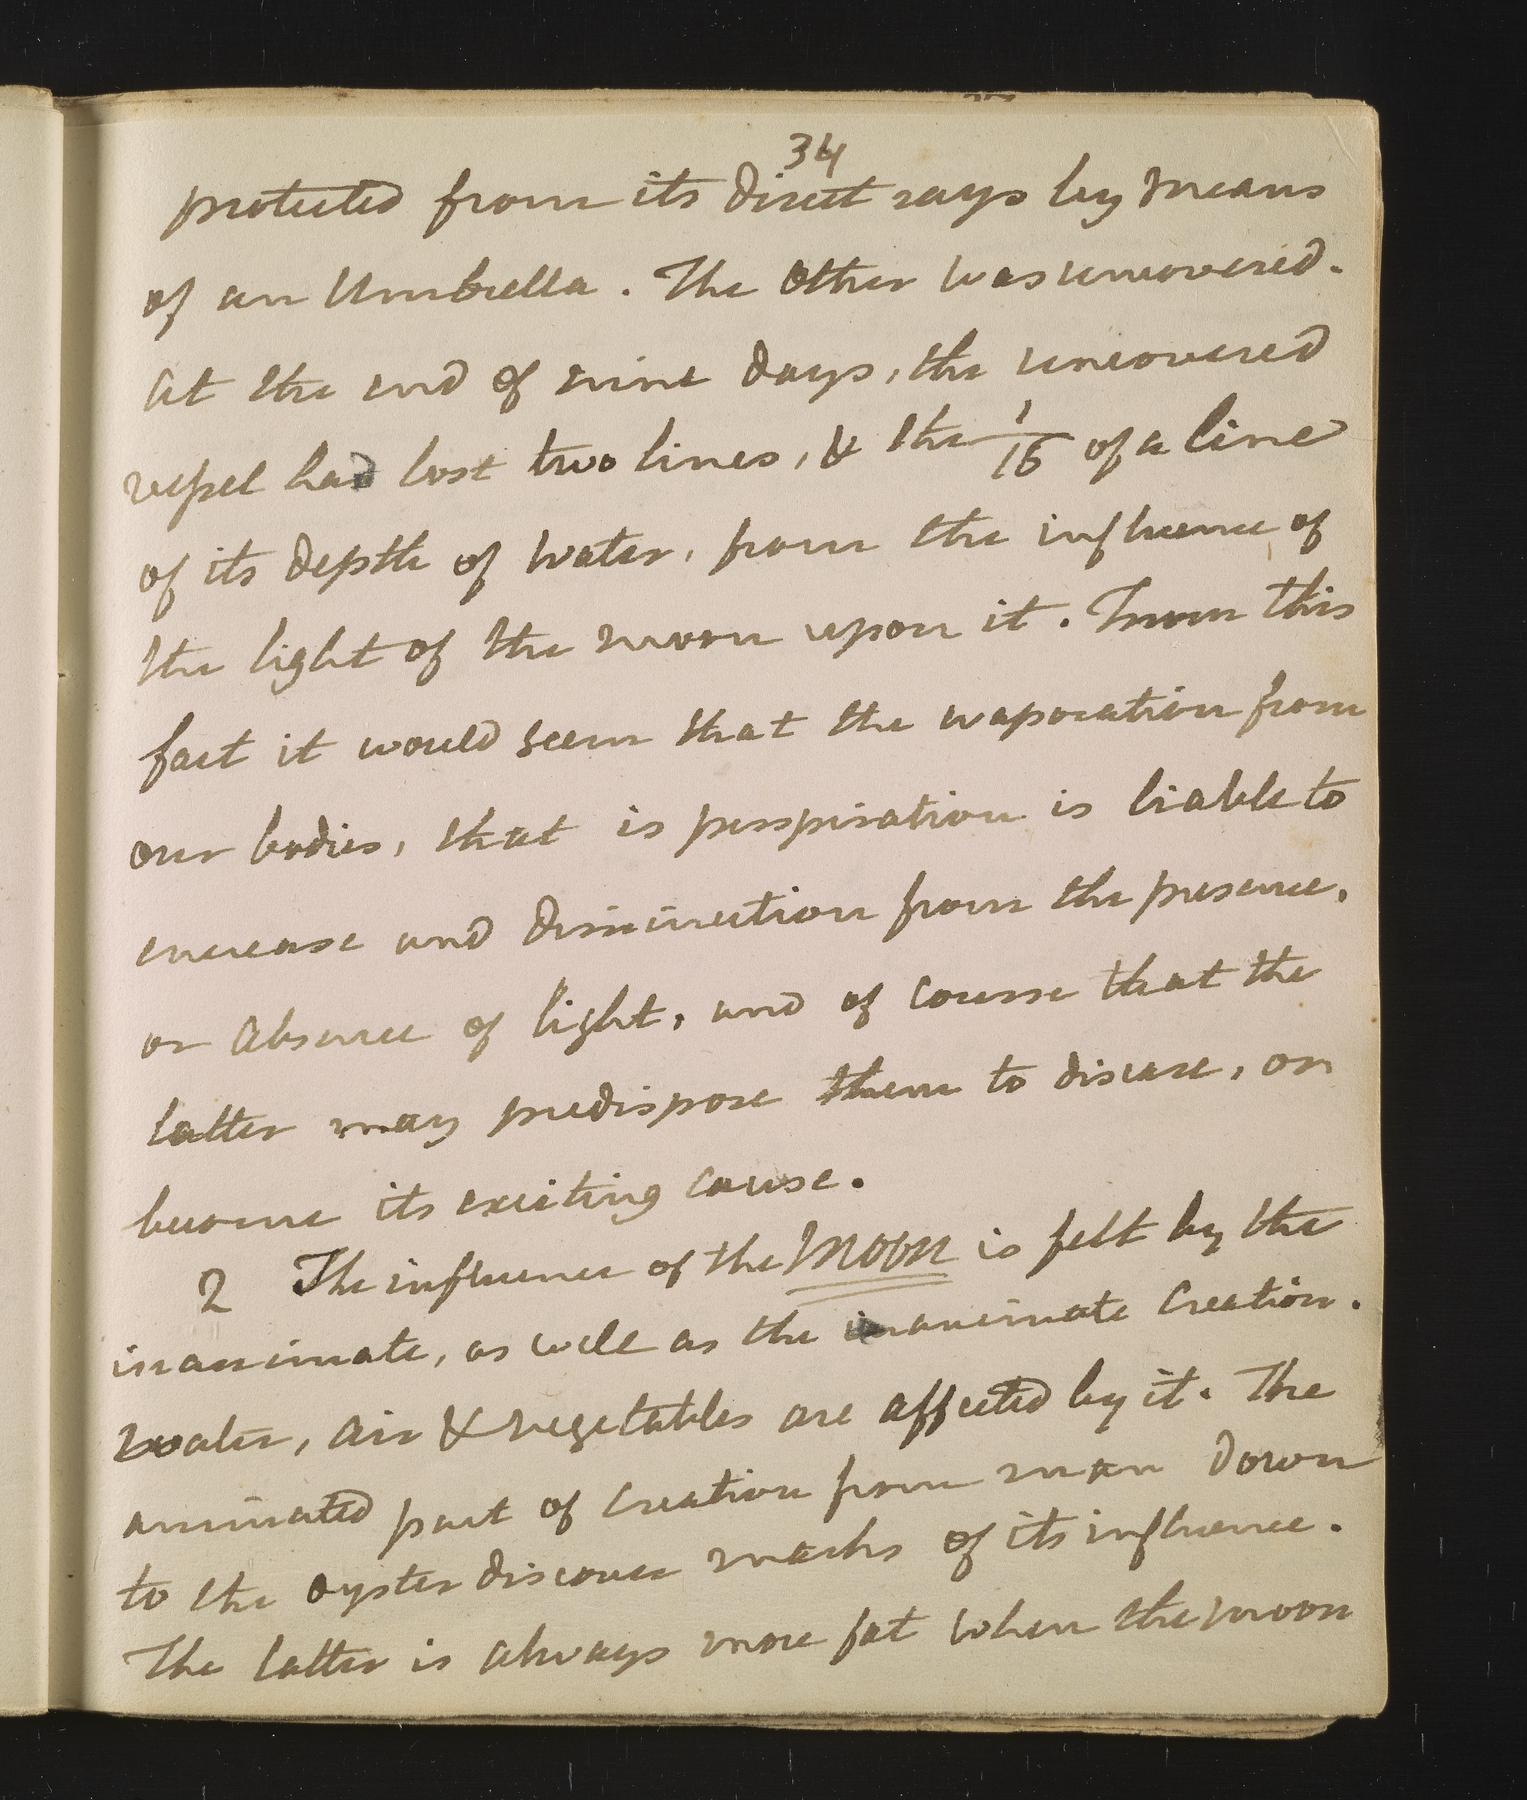 34
protected from its direct rays by means
of an Umbrella. The Other was uncovered.
At the end of nine days, the uncovered
vessel had lost two lines, & the 1/16 of a line
of its depth of water, from the influence of
the light of the moon upon it. From this
fact it would seem that the evaporation from
our bodies, that is perspiration is liable to
encrease and diminution from the presence,
or absence of light, and of course that the
latter may predispose them to disease, or
become its exciting cause.
2 The influence of the Moon is felt by the
inanimate, as well as the inanimate Creation.
Water, Air & vegetables are affected by it. The
animated part of Creation from man down
to the oyster discover marks of its influence.
The latter is always more fat when the moon